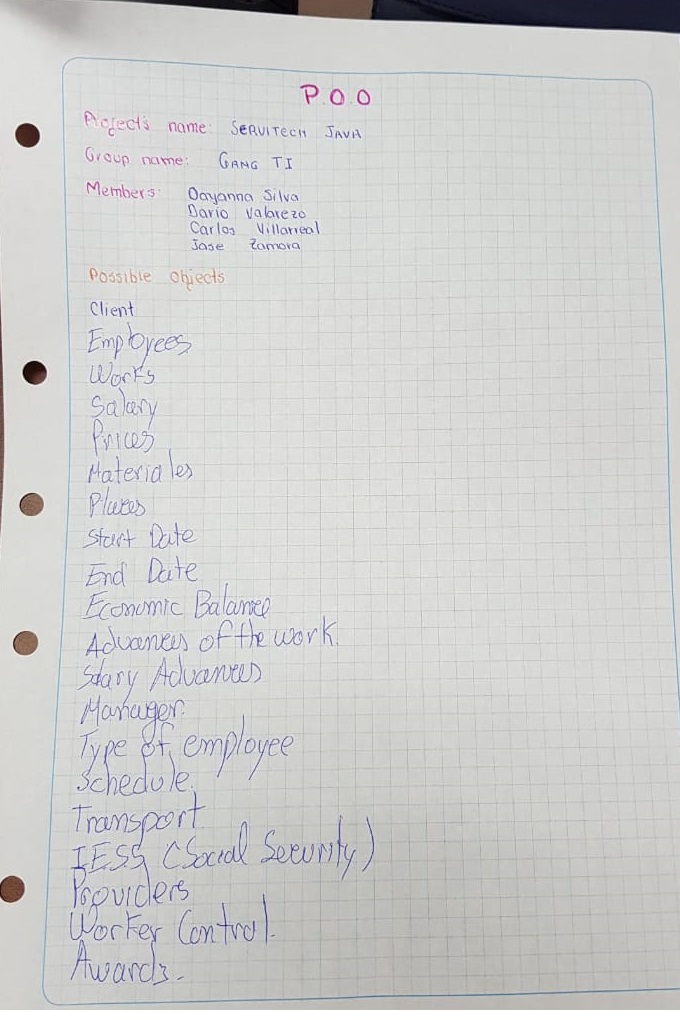 P.O.O
Project's name: SERVITECH JAVA
Group name: GANG TI
Members: Dayanna Silva
Dario Valarezo
Carlos Villarreal
Jose Zamora
Possible objects
Client
Employees
Works
Salary
Prices
Materiales
Places
Start Date
End Date
Economic Balance
Advances of the work.
Salary Advances
Manager.
Type of employee
Schedule.
Transport
IESS (Social Security)
Providers
Worker Control.
Awards.